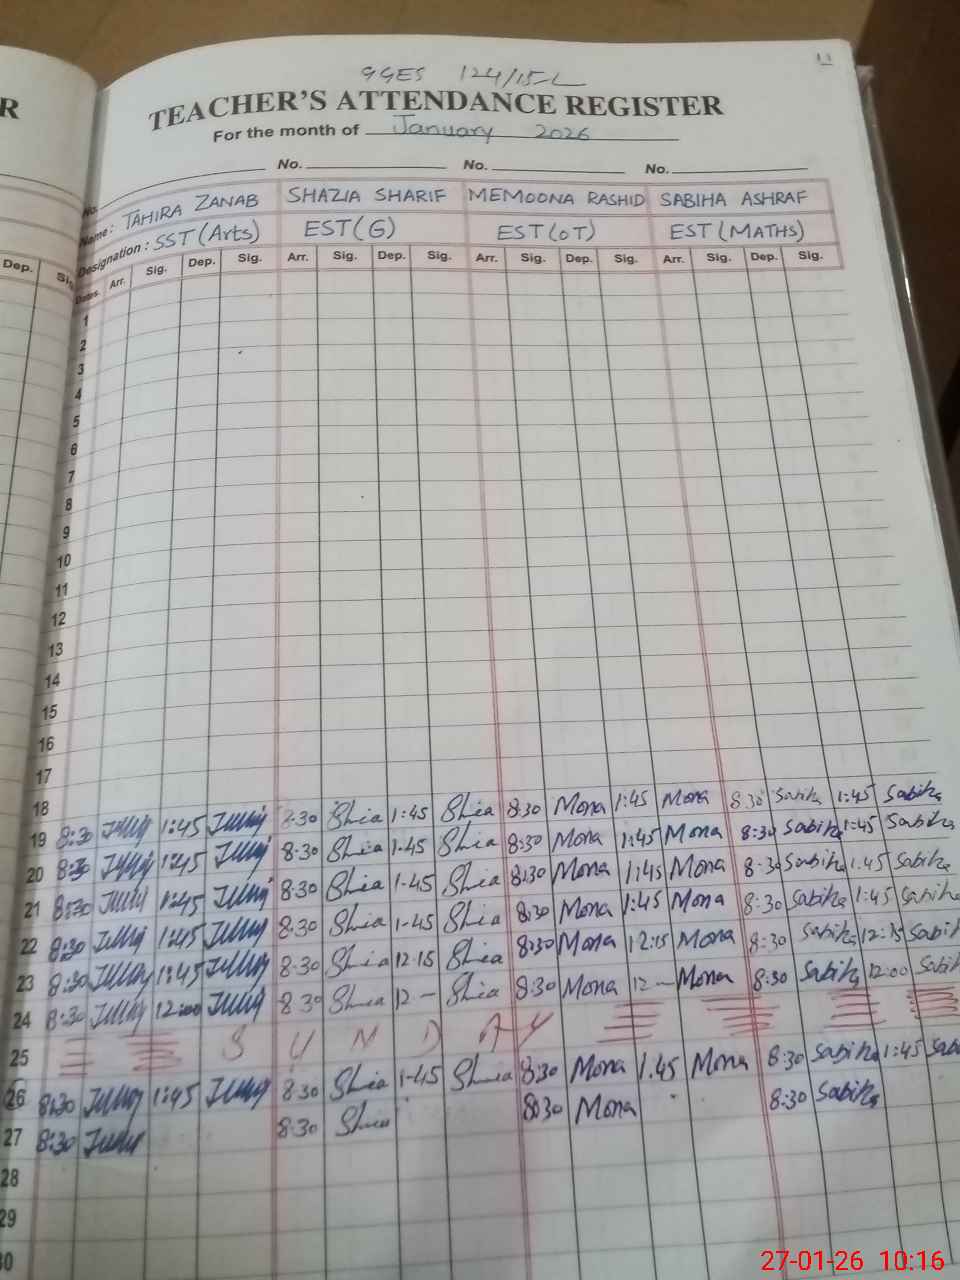 GGES 124/15-L
TEACHER'S ATTENDANCE REGISTER
For the month of January 2026
No. No. No. No.
Name: TAHIRA ZANAB SHAZIA SHARIF MEMOONA RASHID SABIHA ASHRAF
Designation: SST (Arts) EST (G) EST (OT) EST (MATHS)
Dates. Arr. Sig. Dep. Sig. Arr. Sig. Dep. Sig. Arr. Sig. Dep. Sig. Arr. Sig. Dep. Sig.
R
Dep. Sig.
1
2
3
4
5
6
7
8
9
10
11
12
13
14
15
16
17
18
19 8:30 1:45 8:30 Shzia 1:45 Shzia 8:30 Mona 1:45 Mona 8:30 Sabiha 1:45 Sabiha
20 8:30 1:45 8:30 Shzia 1-45 Shzia 8:30 Mona 1:45 Mona 8:30 Sabiha 1:45 Sabiha
21 8:30 1:45 8:30 Shzia 1-45 Shzia 8:30 Mona 1:45 Mona 8:30 Sabiha 1:45 Sabiha
22 8:30 1:45 8:30 Shzia 1-45 Shzia 8:30 Mona 1:45 Mona 8:30 Sabiha 1:45 Sabiha
23 8:30 1:45 8:30 Shzia 12-15 Shzia 8:30 Mona 12:15 Mona 8:30 Sabiha 12:15 Sabiha
24 8:30 12:00 8:30 Shzia 12 - Shzia 8:30 Mona 12 - Mona 8:30 Sabiha 12:00 Sabiha
25 S U N D A Y
26 8:30 1:45 8:30 Shzia 1-45 Shzia 8:30 Mona 1.45 Mona 8:30 Sabiha 1:45 Sab
27 8:30 8:30 Shzia 8:30 Mona 8:30 Sabiha
28
29
30
27-01-26 10:16